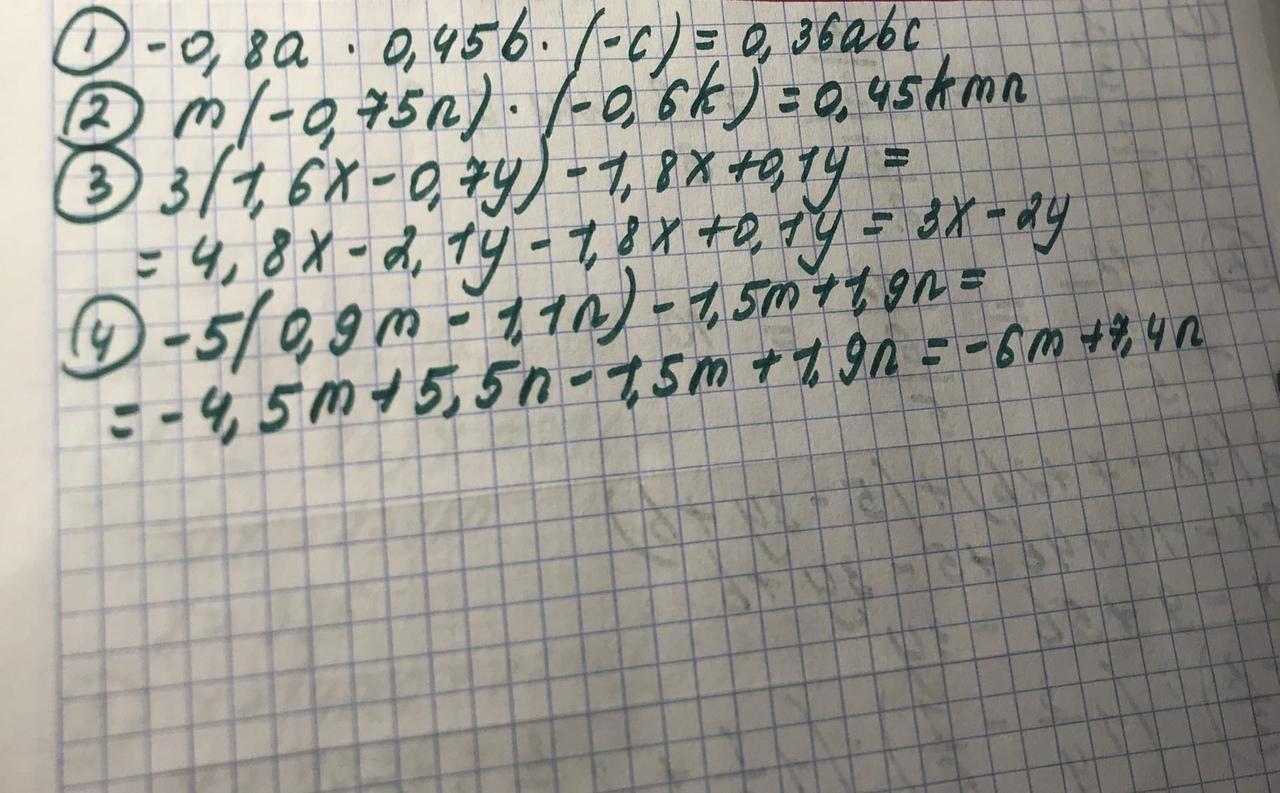 ① -0,8a · 0,45b · (-c) = 0,36abc
② m(-0,75n) · (-0,6k) = 0,45kmn
③ 3(1,6x - 0,7y) - 1,8x + 0,1y =
= 4,8x - 2,1y - 1,8x + 0,1y = 3x - 2y
④ -5(0,9m - 1,1n) - 1,5m + 1,9n =
= -4,5m + 5,5n - 1,5m + 1,9n = -6m + 7,4n